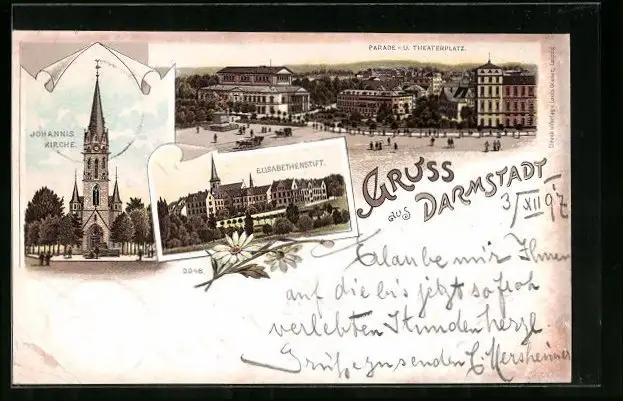 PARADE - U. THEATERPLATZ.
JOHANNIS
KIRCHE.
ELISABETHENSTIFT.
GRUSS
aus DARMSTADT
3/XII 97
2048.
Erlaube mir Ihnen
auf die bis jetzt so froh
verlebten Stunden herzl.
Grüße zu senden C. Mersheimer